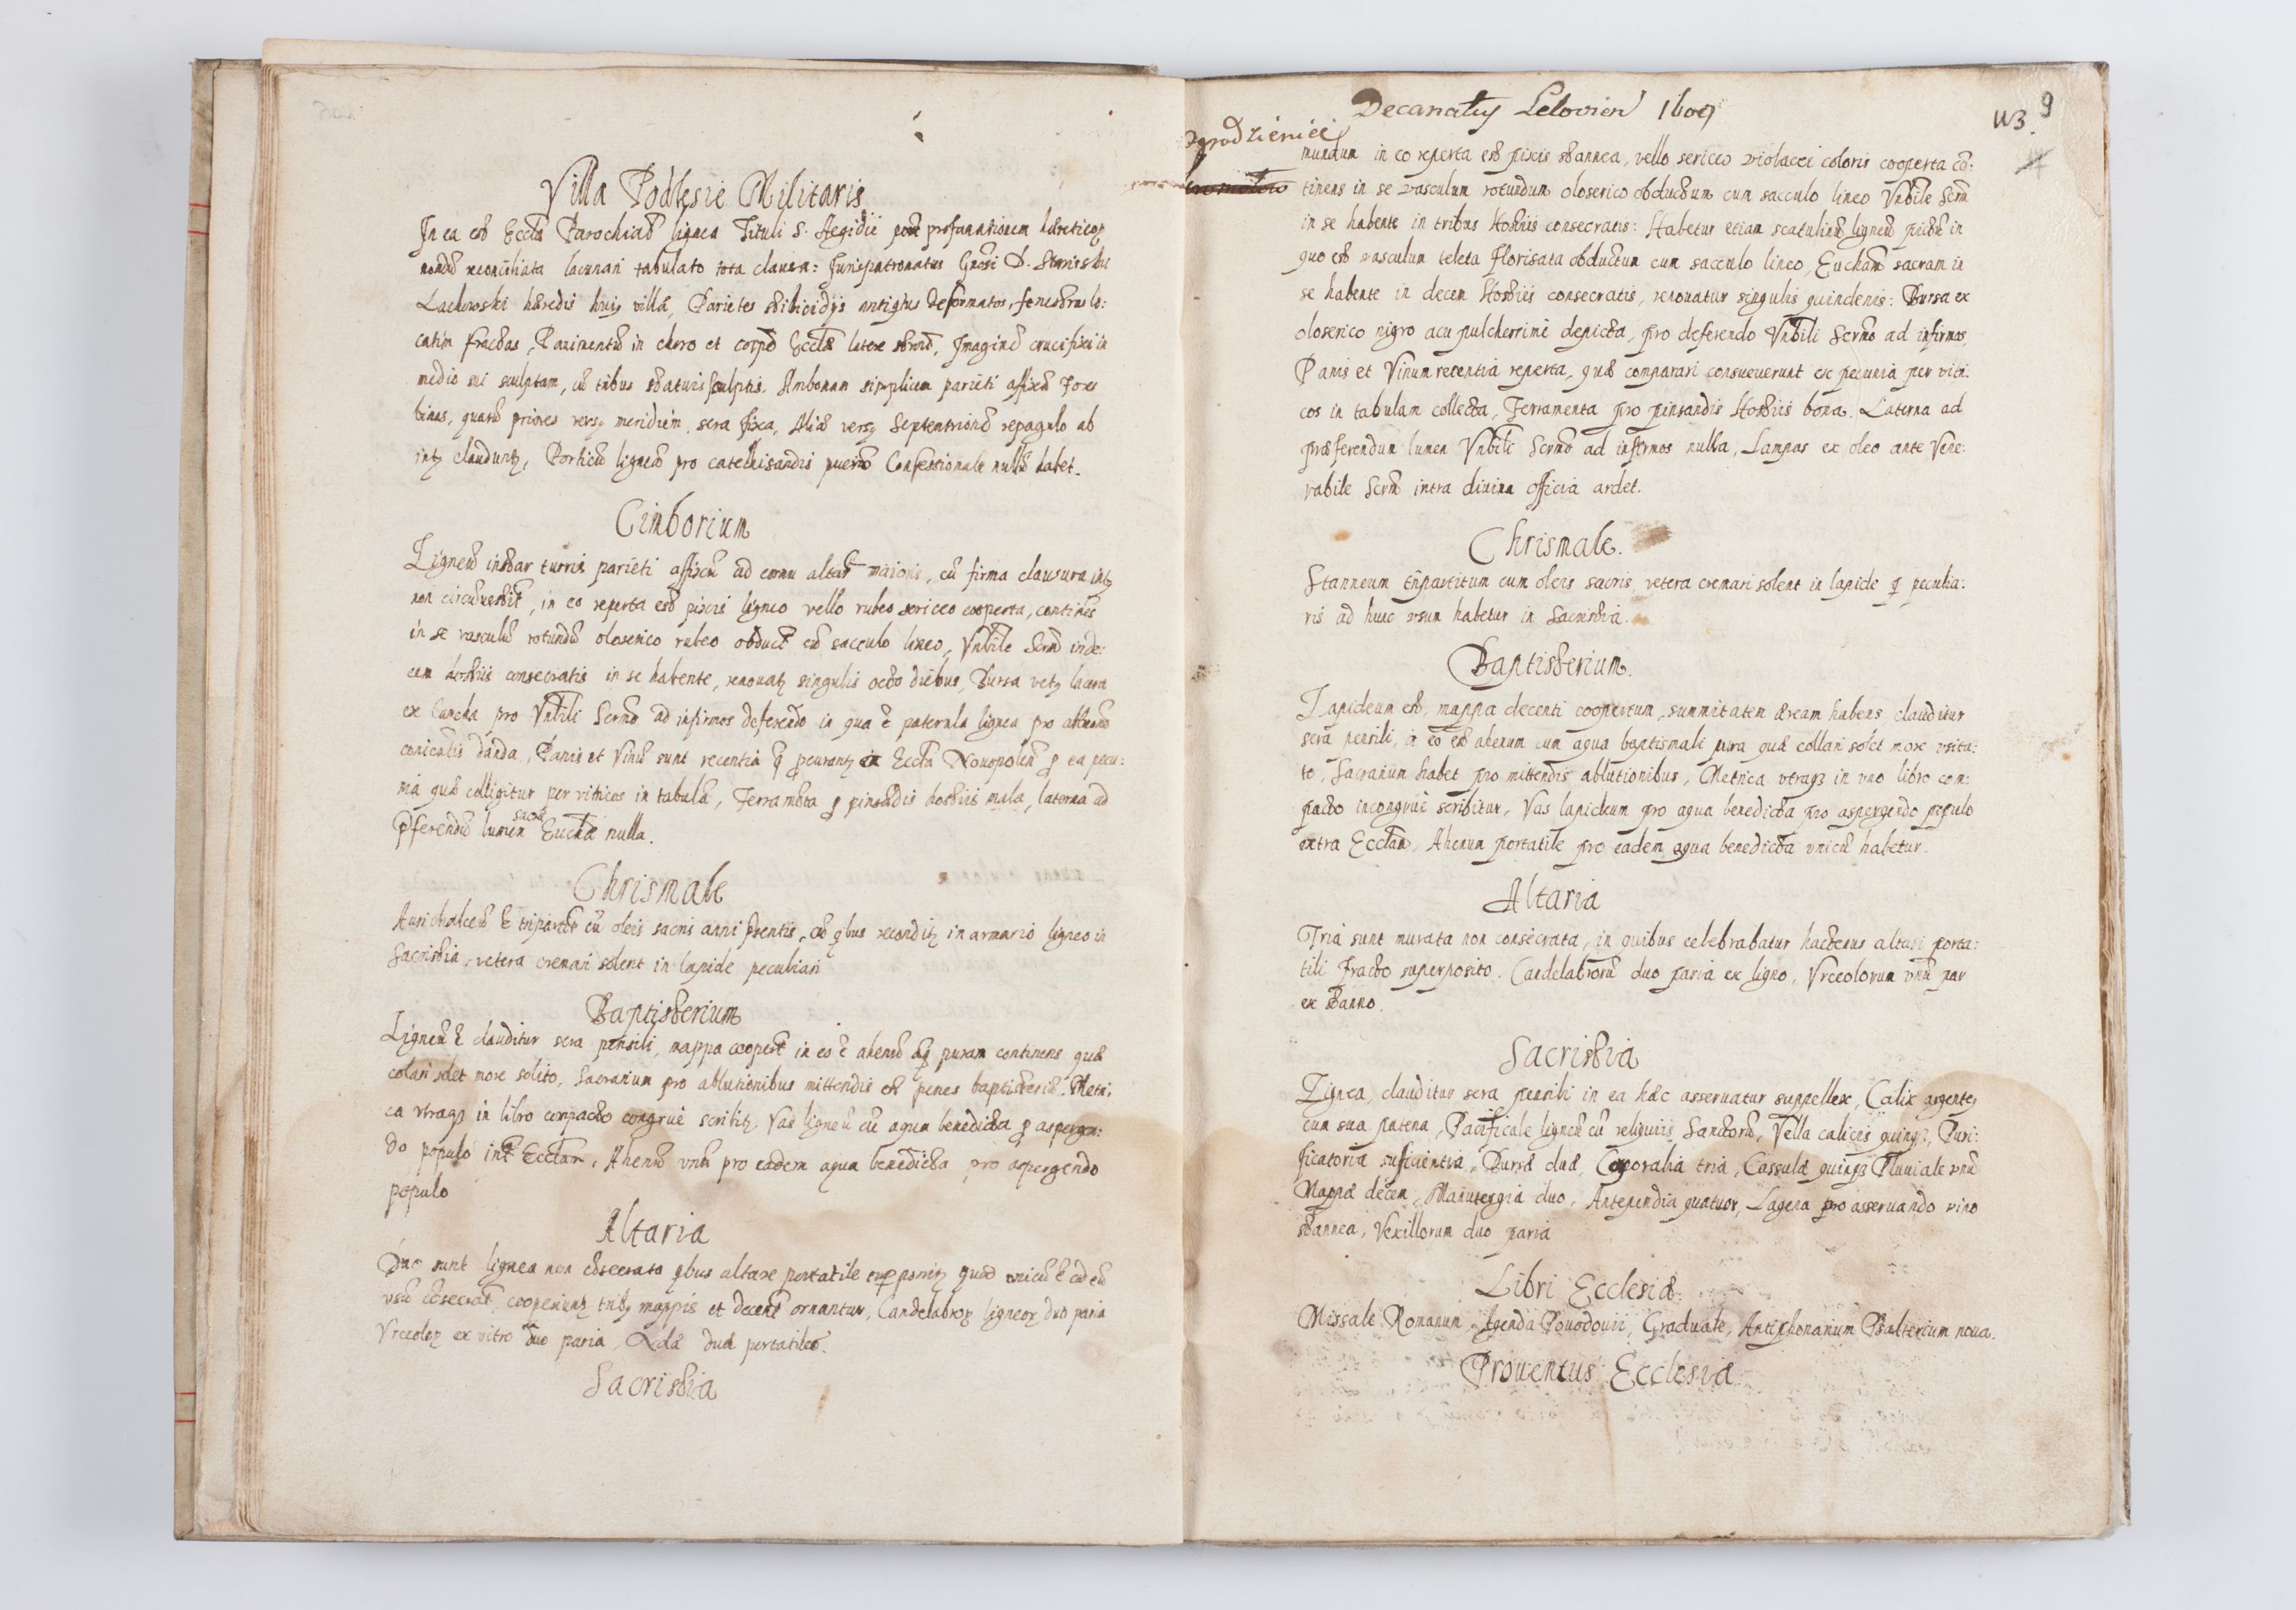 Villa Podlesie Militaris
In ea est Eccla Parochial lignea Tituli S. Aegidii post profanationem hereticor
nondu reconciliata lacunari tabulato tota clausa: Jurispatronatus Gnosi D.
Lachowski hæredis huiq villæ, Parietes stilicidijs antiqius deformatos, fenestras lo:
catim fractas, Pavimentu in choro et corpe Ecclæ latere strato, Imagine crucifixi in
medio sui sculptam, cu tribus statuis sculptis. Ambonam simplicem parieti affixa Fores
binas, quaru priores versq meridiem, sera fixa, Aliæ versq Septentrione repagulo ab
intq claudutq, Porticu ligneu pro catechisandis pueris Confessionale nullu habet.
Cimborium
Ligneu instar turris parieti affixu ad cornu altar maioris, cu firma clausura intq
non circuvestit, in eo reperta est pixis ligneo vello rubeo sericeo cooperta, contines
in se vasculu rotundu oloserico rubeo obduct cu sacculo lineo, Vnbile Scrm in de:
cem hostiis consecratis in se habente, renovatq singulis octo diebus, Bursa vetq lacera
ex pro Vnbili Scrmo ad infirmos deferendo in qua e paterula lignea pro
danda, Panis et Vinu sunt recentia q pcurantq ex Eccla Novopolen p ea pecu:
nia quæ colligitur per vitricos in tabula, Ferrameta p pinsedis hostiis mala, laterna ad
pferendu lumen sacræ Euchæ nulla.
Chrismale
Aurichalceu e tripartit cu oleis sacris anni pſentis, cu qbus reconditq in armario ligneo in
Sacristia, vetera cremari solent in lapide peculiari
Baptisterium
Ligneu e clauditur sera pensili, mappa coopert in eo e ahenu aq puram continens quæ
colari solet more solito, Sacrarium pro ablutionibus mittendis est penes baptisteriu. Metri:
ca vtraqz in libro compacto congrue scribitq. Vas ligneu cu aqua benedicta p aspergen:
do populo int Ecclam, Ahenu vnu pro eadem aqua benedicta pro aspergendo
populo
Altaria
Duo sunt lignea non cosecrata qbus altare portatile supponitq quod vnicu e ad eu
usu cosecrat, cooperiuntq tribq mappis et decent ornantur, Candelabror ligneor duo paria
Vrceolor ex vitro duo paria, duæ portatiles.
Sacristia
Decanatus Leloviens 1609
9
113.
Ogrodzieniec
mundum in eo reperta est pixis stannea, vello sericeo violacei coloris cooperta co:
tinens in se vasculum rotundum oloserico obductum cum sacculo lineo Vnbile Scrm
in se habente in tribus Hostiis consecratis: Habetur etiam scatulinu ligneu pictu in
quo est vasculum teleta florisata obductum cum sacculo lineo, Eucham sacram in
se habente in decem Hostiis consecratis, renouatur singulis quindenis: Bursa ex
oloserico nigro acu pulcherrime depicta, pro deferendo Vnbili Scrmo ad infirmos,
Panis et Vinum recentia reperta, quæ comparari consueuerunt ex pecunia per vitri:
cos in tabulam collecta, Ferramenta pro pinsandis Hostiis bona. Laterna ad
præferendum lumen Vnbili Scrmo ad infirmos nulla, Lampas ex oleo ante Vene:
rabile Scrm intra diuina officia ardet.
Chrismale.
Stanneum tripartitum cum oleis sacris, vetera cremari solent in lapide q peculia:
ris ad hunc vsum habetur in Sacristia.
Baptisterium.
Lapideum est, mappa decenti coopertum, summitatem æream habens, clauditur
sera pensili, in eo est ahenum cum aqua baptismali pura quæ collari solet more vsita:
to, Sacrarium habet pro mittendis ablutionibus, Metrica vtraqz in vno libro com:
pacto incongrue scribitur, Vas lapideum pro aqua benedicta pro aspergendo populo
extra Ecclam, Ahenum portatile pro eadem aqua benedicta vnicu habetur.
Altaria
Tria sunt murata non consecrata, in quibus celebrabatur hactenus altari porta:
tili fracto superposito. Candelabroru duo paria ex ligno, Vrceolorum vnu par
ex stanno.
Sacristia
Lignea, clauditur sera pensili in ea hæc asseruatur suppellex, Calix argenteq
cum sua patena, Pacificale ligneu cu reliquiis Sanctoru, Vella calices quinqz, Puri:
ficatoria suficientia, Bursæ duæ, Corporalia tria, Cassulæ quinqz Pluuiale vnu
Mappæ decem, Manutergia duo, Antependia quatuor, Lagena pro asseruando vino
stannea, Vexillorum duo paria
Libri Ecclesiæ.
Missale Romanum, Agenda Pouodouii, Graduale, Antiphonarium Psalterium noua.
Prouentus Ecclesiæ